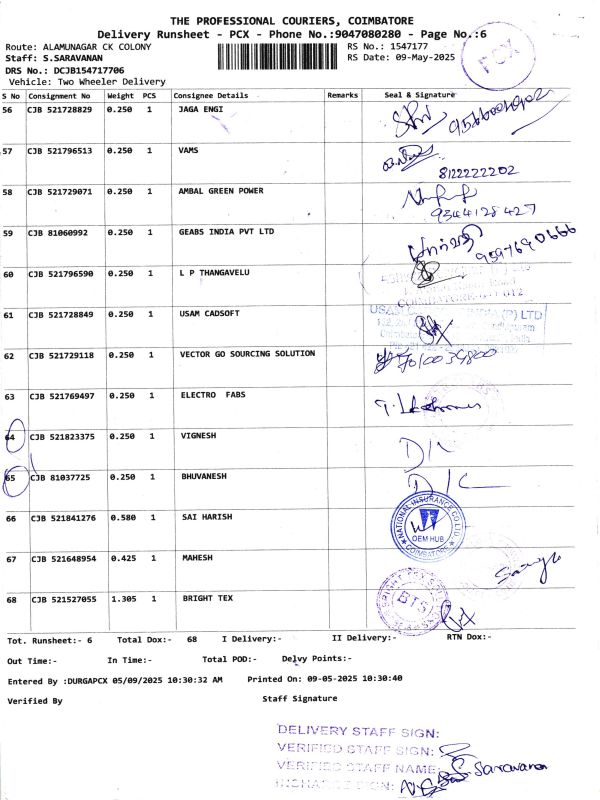 THE PROFESSIONAL COURIERS, COIMBATORE
Delivery Runsheet - PCX - Phone No.:9047080280 - Page No.:6
Route: ALAMUNAGAR CK COLONY
RS No.: 1547177
Staff: S.SARAVANAN
RS Date: 09-May-2025
PCX
DRS No.: DCJB154717706
Vehicle: Two Wheeler Delivery
S No Consignment No Weight PCS Consignee Details Remarks Seal & Signature
56 CJB 521728829 0.250 1 JAGA ENGI
57 CJB 521796513 0.250 1 VAMS
8122222202
58 CJB 521729071 0.250 1 AMBAL GREEN POWER
9344128427
59 CJB 81060992 0.250 1 GEABS INDIA PVT LTD
60 CJB 521796590 0.250 1 L P THANGAVELU
61 CJB 521728849 0.250 1 USAM CADSOFT
62 CJB 521729118 0.250 1 VECTOR GO SOURCING SOLUTION
63 CJB 521769497 0.250 1 ELECTRO FABS
64 CJB 521823375 0.250 1 VIGNESH
65 CJB 81037725 0.250 1 BHUVANESH
66 CJB 521841276 0.580 1 SAI HARISH
NATIONAL INSURANCE CO LTD
OEM HUB
COIMBATORE
67 CJB 521648954 0.425 1 MAHESH
68 CJB 521527055 1.305 1 BRIGHT TEX
BTS
Tot. Runsheet:- 6 Total Dox:- 68 I Delivery:- II Delivery:- RTN Dox:-
Out Time:- In Time:- Total POD:- Delvy Points:-
Entered By :DURGAPCX 05/09/2025 10:30:32 AM Printed On: 09-05-2025 10:30:40
Verified By Staff Signature
DELIVERY STAFF SIGN:
VERIFIED STAFF SIGN:
VERIFIED STAFF NAME: S. Saravanan
INCHARGE SIGN: